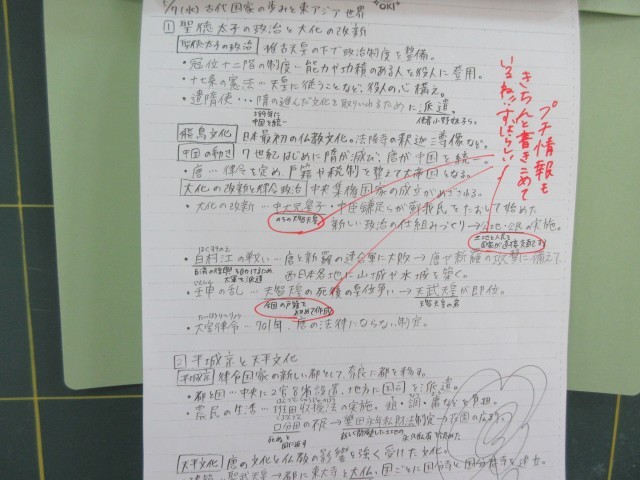 5/7(水) 古代国家の歩みと東アジア世界 "OKI"
1 聖徳太子の政治と大化の改新
聖徳太子の政治 推古天皇の下で政治制度を整備。
・冠位十二階の制度…能力や功績のある人を役人に登用。
・十七条の憲法…天皇に従うことなど、役人の心構え。
・遣隋使…隋の進んだ文化を取り入れるために派遣。
中国を統一
使者小野妹子ら。
飛鳥文化 日本最初の仏教文化。法隆寺の釈迦三尊像など。
中国の動き 7世紀はじめに隋が滅び、唐が中国を統一。
・唐…律令を定め、戸籍や税制を整えて大帝国となる。
大化の改新と律令政治 中央集権国家の成立がめざされる。
・大化の改新…中大兄皇子・中臣鎌足らが蘇我氏をたおして始めた
のちの天智天皇
新しい政治の仕組みづくり→公地・公民の実施。
土地と人民を
国家が直接支配する
はくすきのえ
・白村江の戦い…唐と新羅の連合軍に大敗→唐や新羅の攻撃に備えて、
大軍を派遣
西日本各地に山城や水城を築く。
じんしん
・壬申の乱…天智天皇の死後の皇位争い→天武天皇が即位。
全国の戸籍を
初めて作成
天智天皇の弟
たいほうりつりょう
・大宝律令…701年、唐の法律にならい制定。
2 平城京と天平文化
平城京 律令国家の新しい都として、奈良に都を移す。
・都と国…中央に2官8省設置、地方に国司を派遣。
・農民の生活…班田収授法の実施。租・調・庸などを負担。
口分田の不足→墾田永年私財法制定→荘園の広まり。
死ぬと
国に返す
新しく開墾した土地の
永久私有を認めた
天平文化 唐の文化と仏教の影響を強く受けた文化。
聖武天皇→都に東大寺と大仏、国ごとに国分寺と国分尼寺を建立。
プチ情報も
きちんと書きこめて
いるね!!すばらしい!